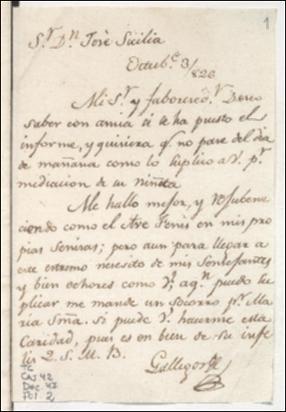 1
S.r D.n José Sicilia
Octub.e 3/826
Mi S.r y faborecd.r Deseo
saber con ancia si se ha puesto el
informe, y quisiera q.e no pase del dia
de mañana como lo suplico a V. p.r
mediacion de su niñita
Me hallo mejor, y rejubene
ciendo como el Ave Fenis en mis pro
pias senizas; pero aun para llegar a
este estremo necesito de mis
y bien echores como V. a q.n puedo su
plicar me mande un socorro p.r Ma
ria Sma. si puede V. hacerme esta
Caridad, pues es en bien de su infe
lis Q. S. M. B.
Gallegos
C
Caj 42
Doc 42
Fol 2